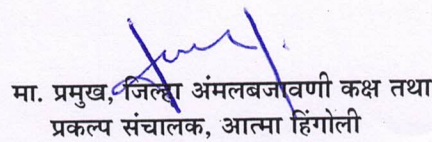 मा. प्रमुख, जिल्हा अंमलबजावणी कक्ष तथा
प्रकल्प संचालक, आत्मा हिंगोली